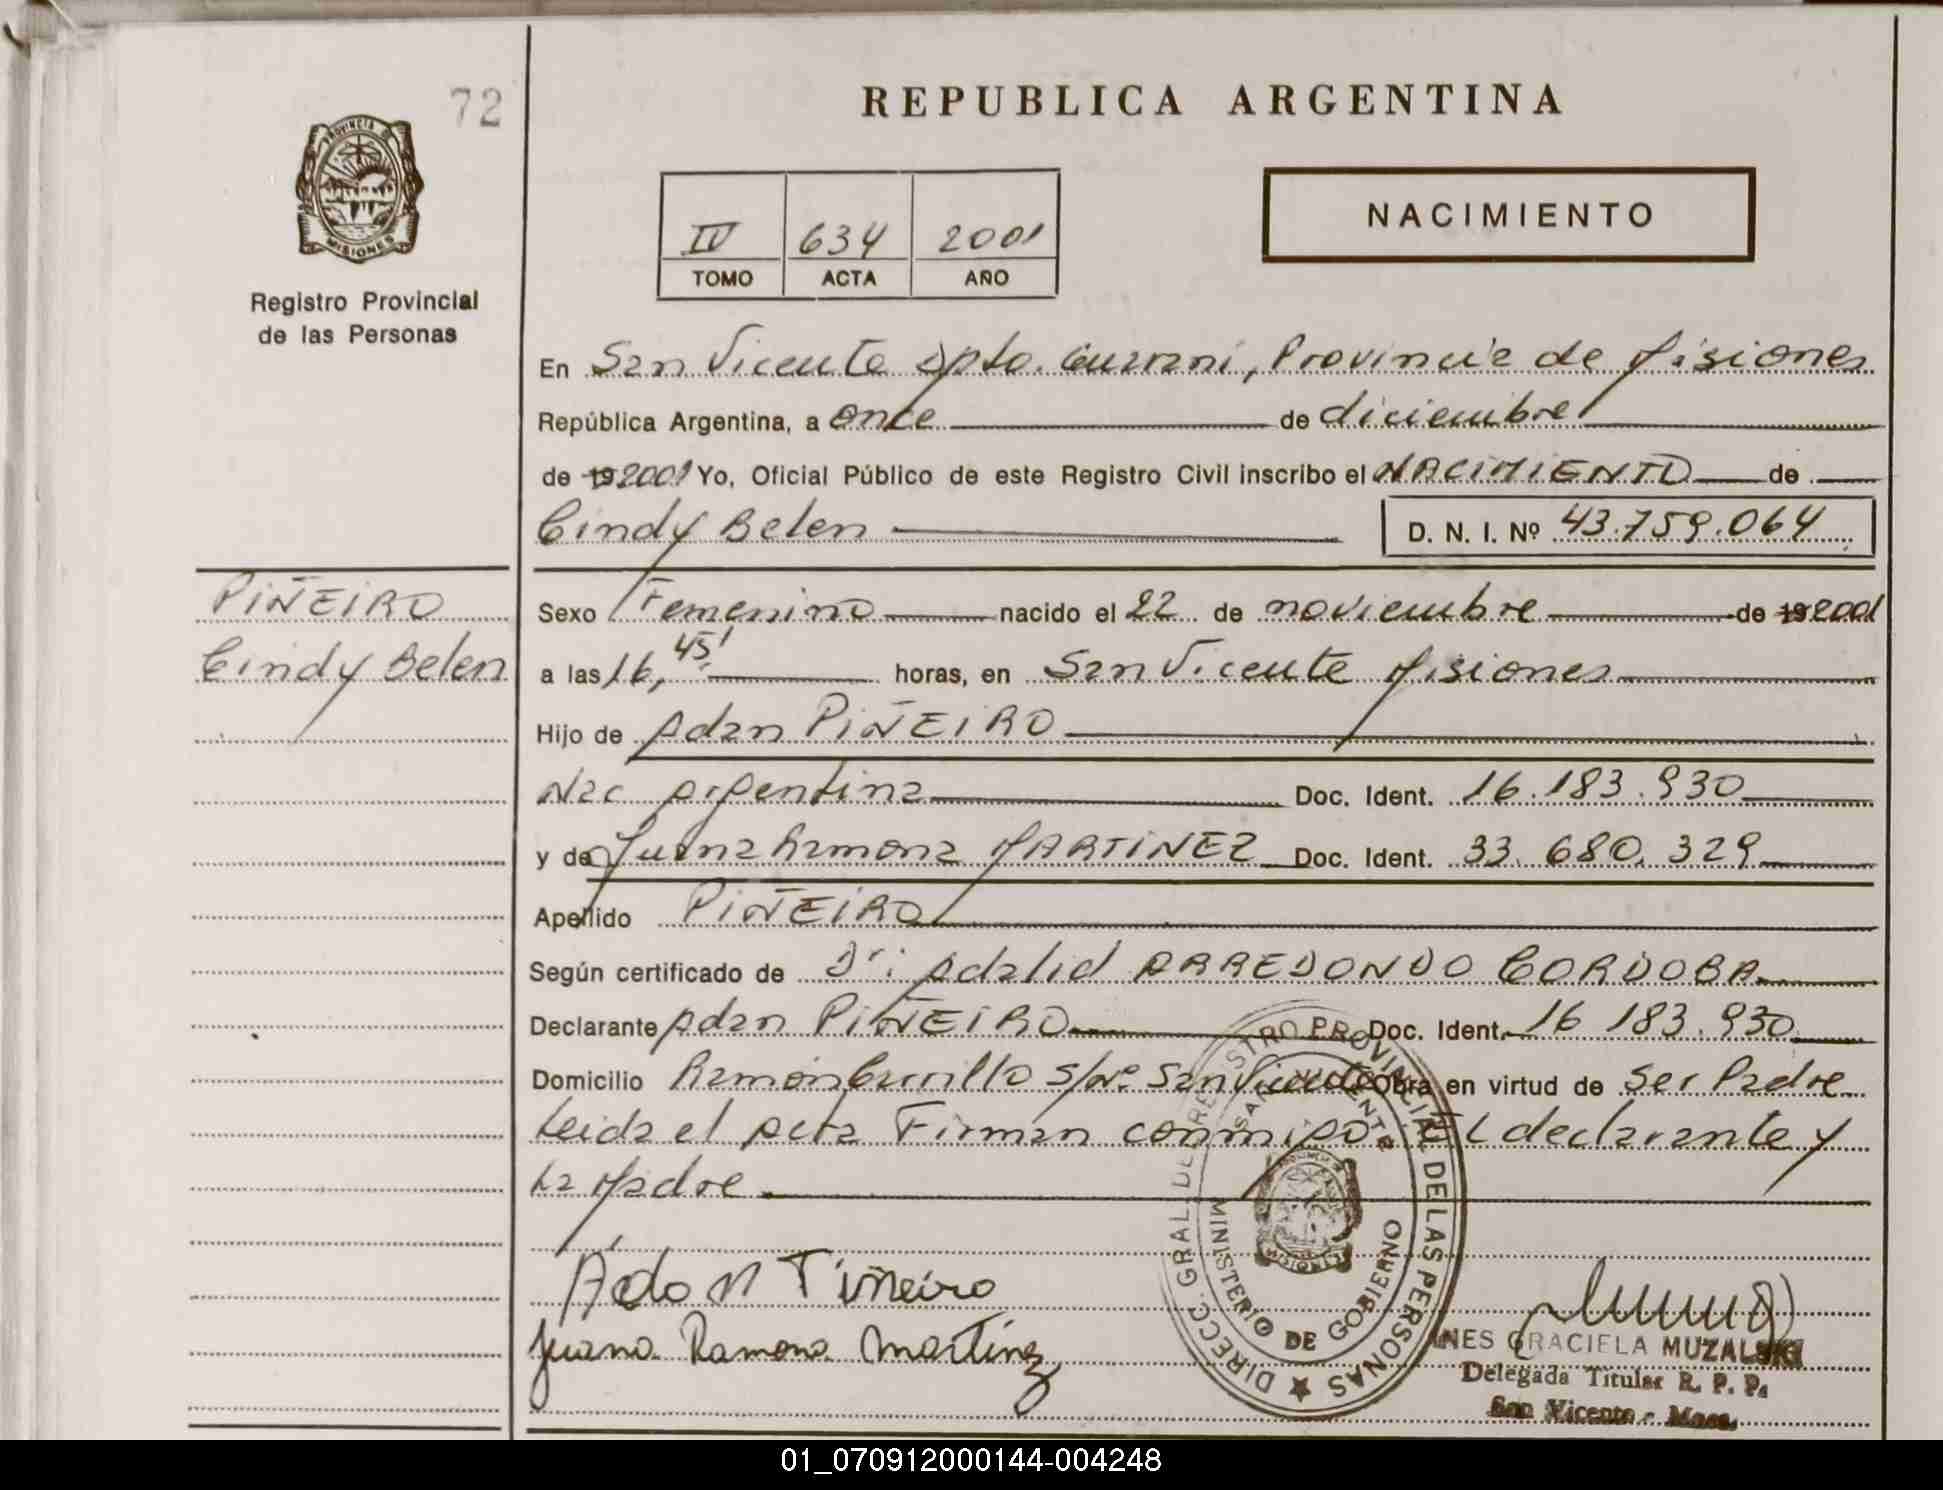 72
REPUBLICA ARGENTINA
PROVINCIA DE
MISIONES
Registro Provincial
de las Personas
IV 634 2001
TOMO ACTA AÑO
NACIMIENTO
En San Vicente Dpto. Guarani, Provincia de Misiones
República Argentina, a once de diciembre
de 19 2001 Yo, Oficial Público de este Registro Civil inscribo el NACIMIENTO de
Cindy Belen D. N. I. Nº 43.759.064
PIÑEIRO
Cindy Belen
Sexo Femenino nacido el 22 de noviembre de 19 2001
a las 16,45' horas, en San Vicente Misiones
Hijo de Adan PIÑEIRO
Nac argentina Doc. Ident. 16.183.930
y de Juana Ramona MARTINEZ Doc. Ident. 33.680.329
Apellido PIÑEIRO
Según certificado de Dr: Adalid ARREDONDO CORDOBA
Declarante Adan PIÑEIRO Doc. Ident. 16 183.930
Domicilio Ramón Carrillo s/Nº San Vicente Obra en virtud de ser Padre
Leida el acta Firman conmigo EL declarante y
La Madre
DIRECC. GRAL. DE REGISTRO PROVINCIAL DE LAS PERSONAS
SAN VICENTE
MINISTERIO DE GOBIERNO
MISIONES
Adan Piñeiro
Juana Ramona Martinez
INES GRACIELA MUZALSKI
Delegada Titular R. P. P.
San Vicente - Mnes.
01_070912000144-004248